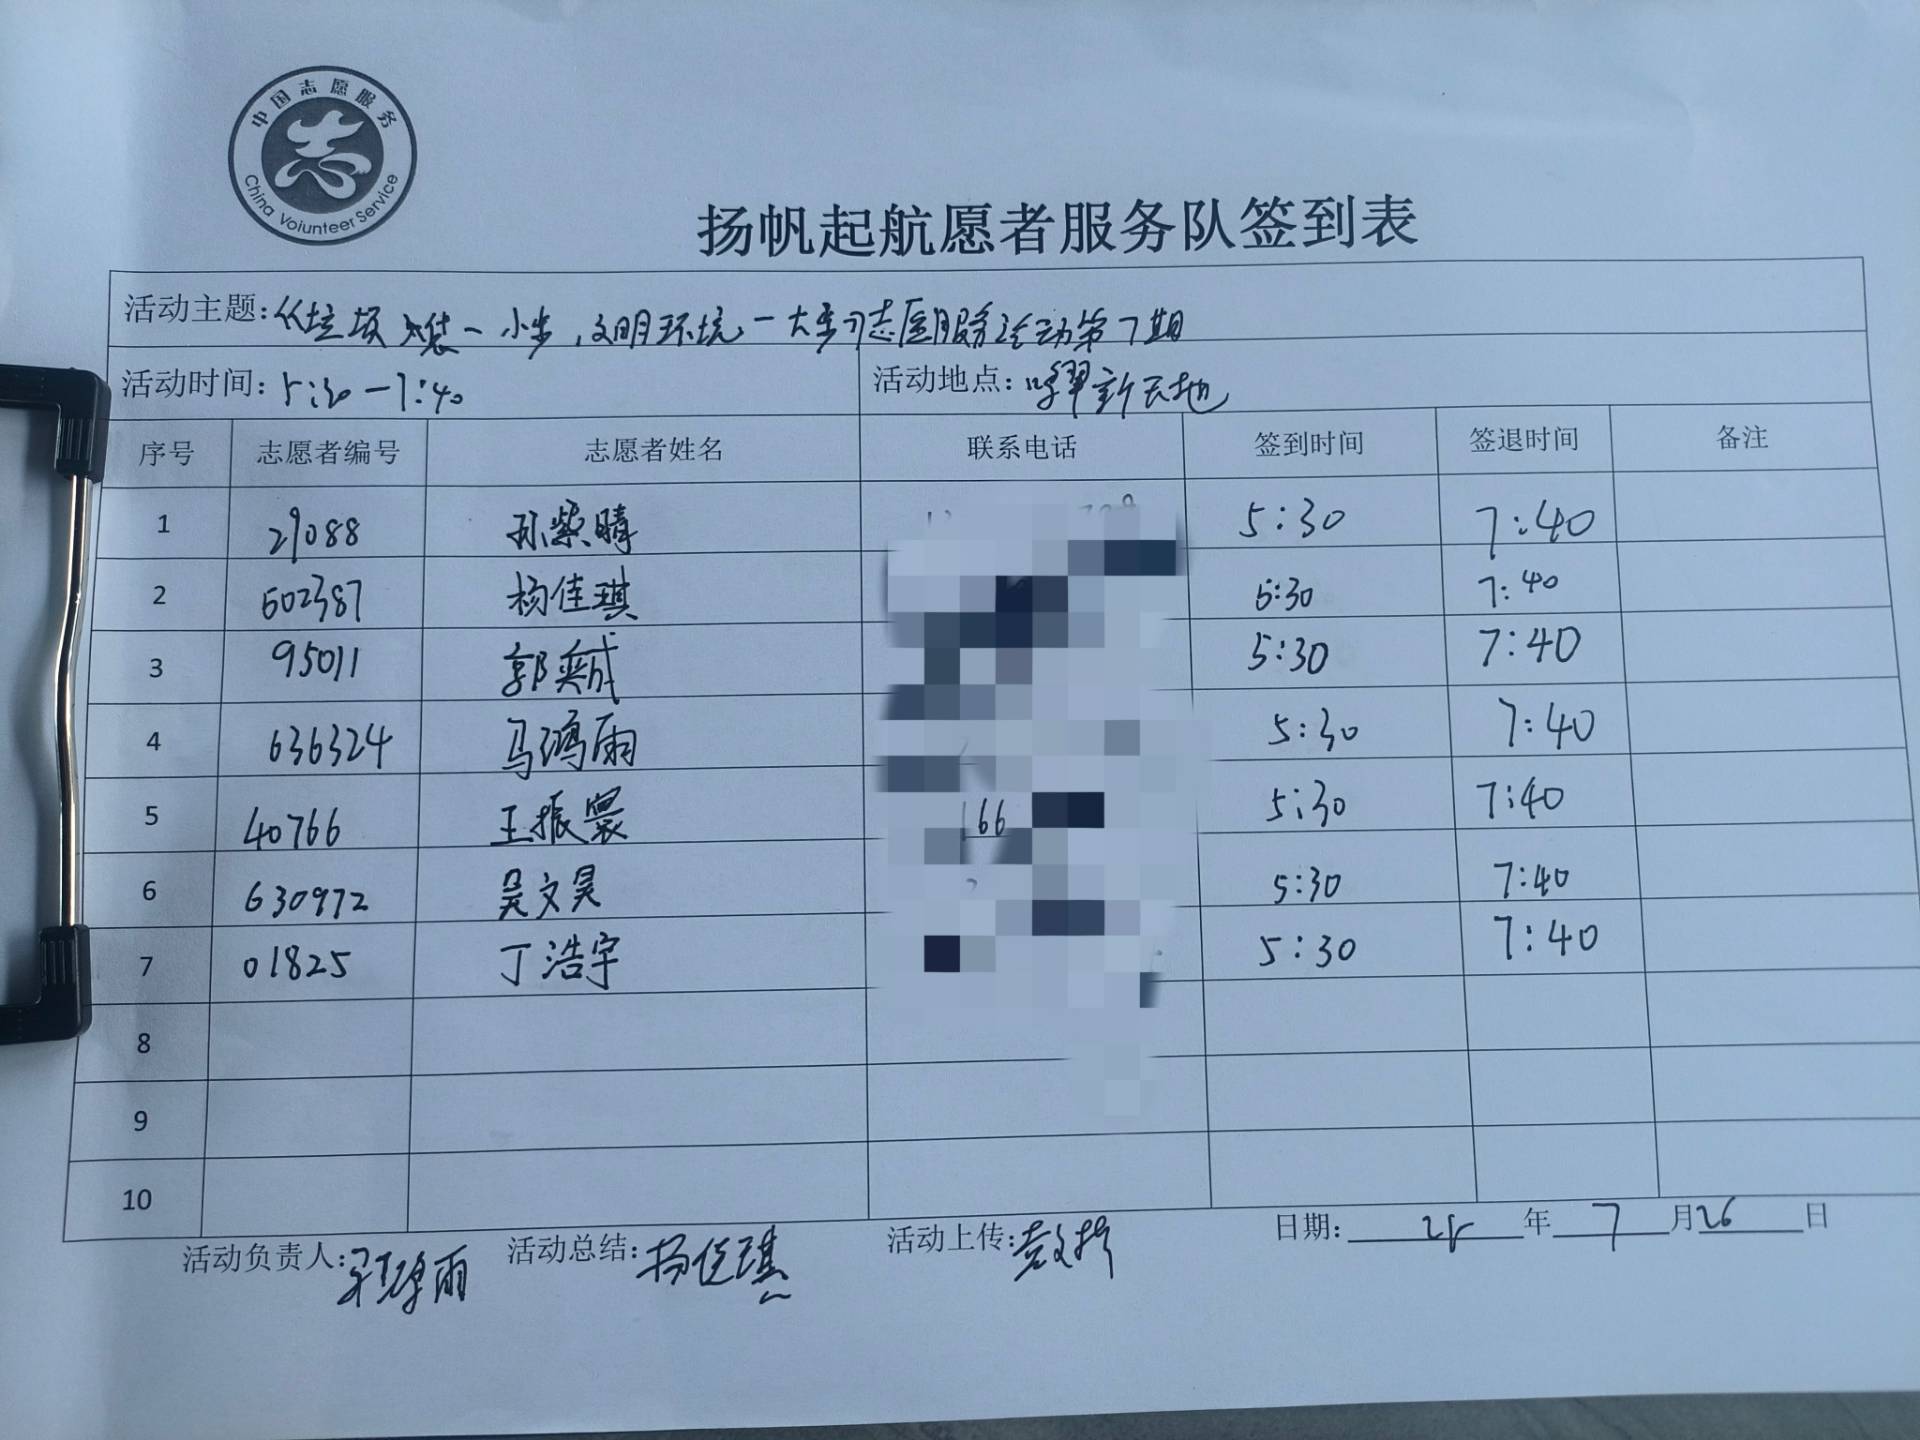 中国志愿服务
China Voiunteer Service
扬帆起航愿者服务队签到表
活动主题:《垃圾袋一小步,文明环境一大步》志愿服务活动第7期
活动时间:5:30-7:40 活动地点:新天地
序号 志愿者编号 志愿者姓名 联系电话 签到时间 签退时间 备注
1 29088 孙紫晴 5:30 7:40
2 602387 杨佳琪 5:30 7:40
3 95011 郭奕成 5:30 7:40
4 636324 马鸿雨 5:30 7:40
5 40766 王振寰 166 5:30 7:40
6 630972 吴文昊 5:30 7:40
7 01825 丁浩宇 5:30 7:40
8
9
10
活动负责人: 雨 活动总结:杨佳琪 活动上传: 日期: 25 年 7 月 26 日